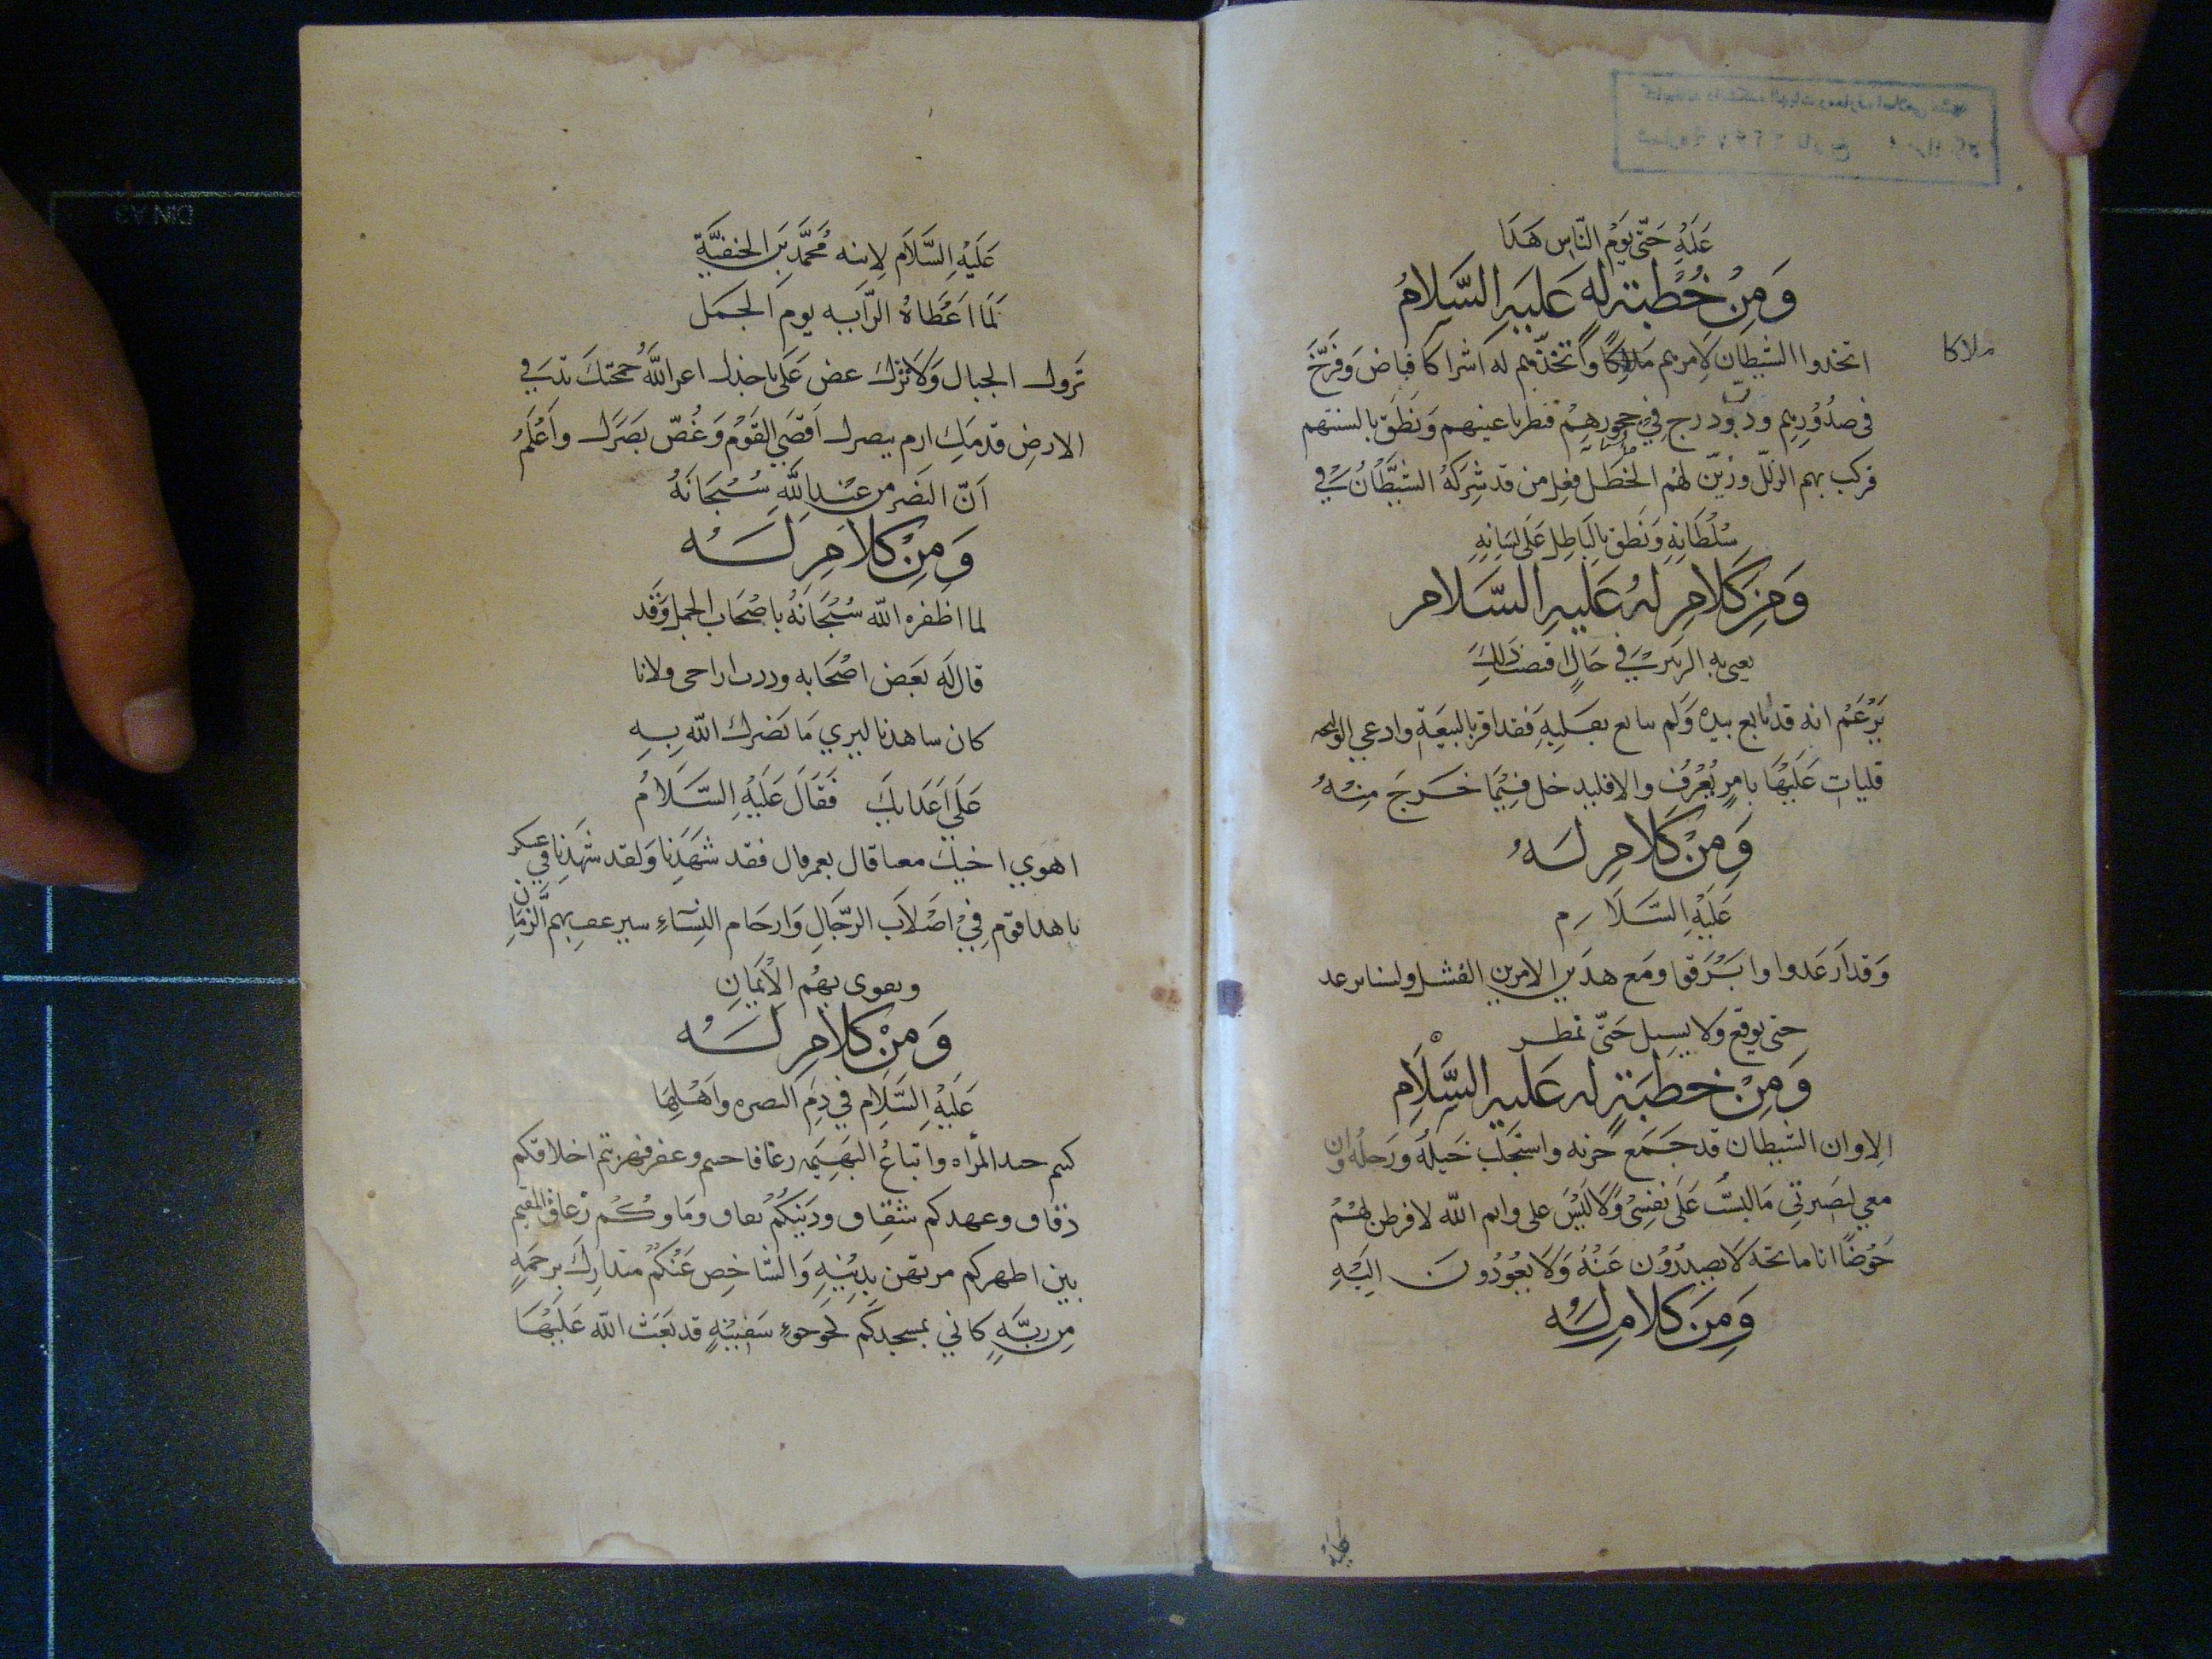 عَلَيْهِ حَتّى يَوْم النّاسِ هَذَا
وَمِنْ خُطْبَتِهِ لَه عَلَيهِ السَّلامُ
اتخذوا الشيطان لامرهم مَلاكًا وَاتخذهم له اَشراكا فباض وَفرّخ
ملاكا
فى صدُورهِم ودبّ ودرج فِي حجورهِمْ فنظر باعينهم وَنَطَق بالسنتهم
فركب بهم الزلَل وزيّن لهُم الخطل فِعْل من قد شرِكهُ الشيطَان فِي
سُلْطَانِهِ وَنَطَق بالبَاطِل عَلَى لسَانِهِ
وَمِنْ كَلامٍ لهُ عَليهِ السَّلام
يعنى به الزبير فِي حَالٍ اقتضت ذَلِكَ
يَزْعَمُ انه قد بايع بيده وَلم يبايع بقَلبِهِ فَقد اقر بالبيعَةِ وادعي الوليجه
فليات عَلَيْهَا بامرٍ يُعْرَف والا فليدخل فِيْمَا خَرَجَ مِنْهُ
وَمِنْ كَلَامٍ لَهُ
عَلَيْهِ السَّلَام
وَقد اَرعَدوا وابْرَقوا ومَع هذَين الامرين الفشل ولسنا نرعد
حتى يوقع وَلا نسيل حَتّى نمطر
وَمِنْ خطبَةٍ له عَليهِ السَّلَامِ
الا وان الشيطان قد جَمَع حزبه واستجلب خَيلَهُ ورَجلهُ وان
معي لبصيرتِي مَا لبّستُ عَلَى نفسِيْ وَلَا لُبّسَ على وايم الله لافرطن لهُمْ
حَوْضًا انا ماتحه لَا يصدُرُوْن عَنْهُ وَلَا يعُوْدُونَ اِلَيْهِ
وَمِنْ كَلَامٍ لَهُ
عَلَيْهِ السَّلَام لابنه مُحمّد بن الحَنفيَّةِ
لَمَا اَعْطَاهُ الرَّايه يوم الجمَل
تَزول الجبال وَلَا تزل عض عَلَى ناجذك اعر اللهَ جُمجمتكَ تد فِي
الارضِ قدمَكَ ارم ببصرك اَقصَي القَوْمِ وَغُضّ بَصَرَكَ واَعْلَمْ
اَنّ النصْر من عندِ اللّهِ سُبْحَانَهُ
وَمِنْ كَلَامٍ لَهُ
لما اظفره الله سُبْحَانَهُ باصْحَاب الجمل وَقَد
قال لَه بَعض اصْحَابه وددت ان اخى فلانا
كان شاهدنا ليري مَا نصرك الله بِهِ
عَلَي اَعدَايكَ فَقَالَ عَلَيْهِ السَّلَامُ
اهوي اخيك معنا قال نعم قال فقد شهَدَنا وَلقد شهَدَنا فِي عسكر
نا هذا قوم فِيْ اصْلَاب الرّجَالِ وَارحَام النِسَاءِ سيرعف بهم الزّمَان
ويقوى بِهمُ الْاِيْمَان
وَمِنْ كَلَامٍ لَهُ
عَلَيْهِ السَّلَام فِي ذِمّ البصره واَهْلِهَا
كنتم جند المرأه واتباعُ البهِيْمه رغا فاجبتم وعقر فهربتم اخلاقكم
دقاق وعهدكم شقِاق ودَيْنكُمْ نفاق ومَاوكُمْ زُعاق المقيم
بين اظهركم مرتهن بذنْبِهِ وَالشّاخِص عَنْكُمْ متدارِك برحمَةٍ
مِن ربِّهِ كاني بمسجدكم كجوجوءِ سَفينَةٍ قد بَعَث الله عَلَيْهَا